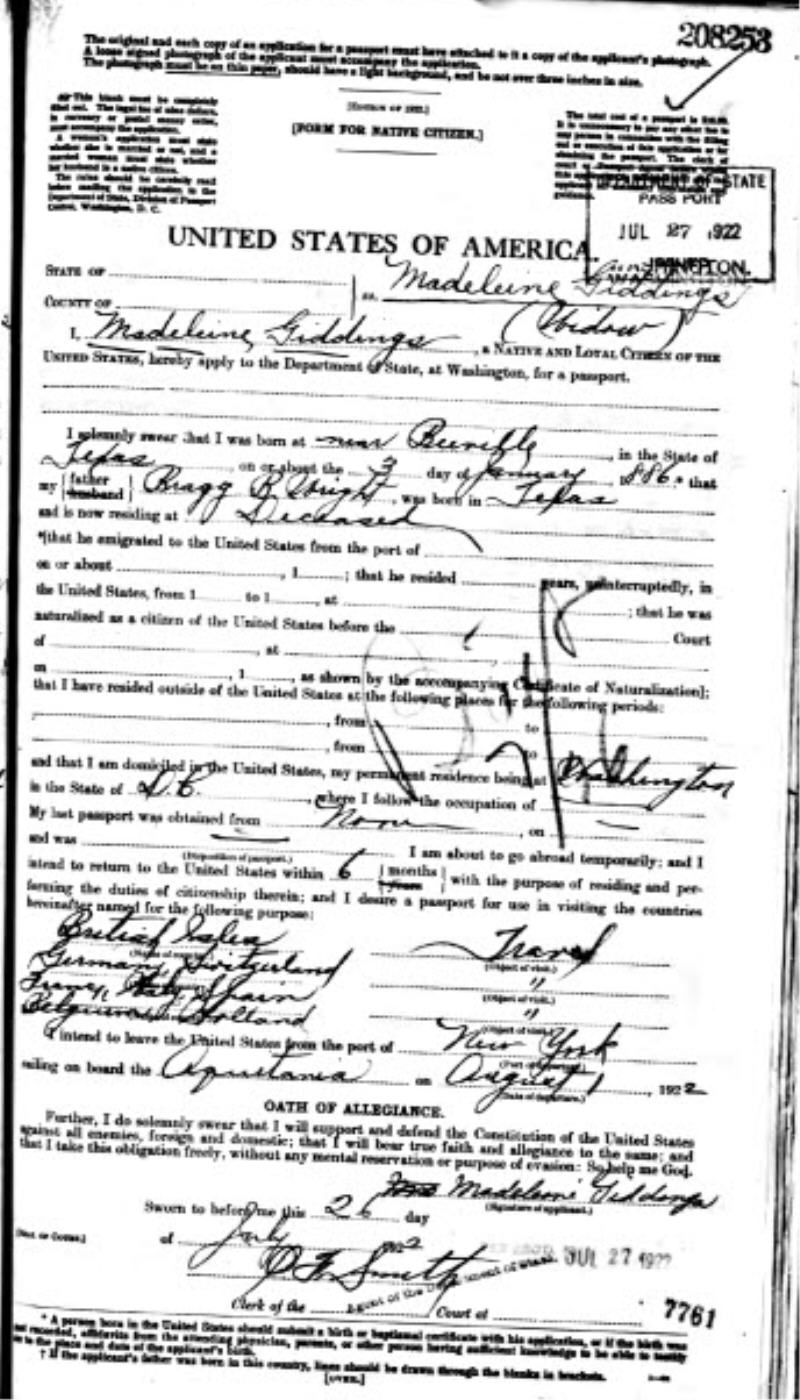 208253
The original and each copy of an application for a passport must have attached to it a copy of the applicant's photograph.
A loose signed photograph of the applicant must accompany the application.
The photograph must be on thin paper, should have a light background, and be not over three inches in size.
[FORM FOR NATIVE CITIZEN.]
This blank must be completely
filled out. The legal fee of nine dollars,
in currency or postal money order,
must accompany the application.
A woman's application must state
whether she is married or not, and a
married woman must state whether
her husband is a native citizen.
The rules should be carefully read
before mailing the application to the
Department of State, Division of Passport
Control, Washington, D. C.
DEPARTMENT OF STATE
PASSPORT
JUL 27 1922
UNITED STATES OF AMERICA.
STATE OF
COUNTY OF
ss.
Madeleine Giddings
(Widow)
I, Madeleine Giddings, a NATIVE AND LOYAL CITIZEN OF THE
UNITED STATES, hereby apply to the Department of State, at Washington, for a passport.
I solemnly swear that I was born at near Beeville, in the State of
Texas, on or about the 3 day of January, 1886, that
my father husband Bragg B. Wright, was born in Texas
and is now residing at Deceased
*[that he emigrated to the United States from the port of
on or about , 1 ; that he resided years, uninterruptedly, in
the United States, from 1 to 1 , at ; that he was
naturalized as a citizen of the United States before the Court
of , at ,
on , 1 , as shown by the accompanying Certificate of Naturalization];
that I have resided outside of the United States at the following places for the following periods:
, from to
, from to
and that I am domiciled in the United States, my permanent residence being at Washington
in the State of D.C., where I follow the occupation of
My last passport was obtained from None, on
and was I am about to go abroad temporarily; and I
(Disposition of passport.)
intend to return to the United States within 6 months years with the purpose of residing and per-
forming the duties of citizenship therein; and I desire a passport for use in visiting the countries
hereinafter named for the following purpose:
British Isles Travel
(Object of visit.)
Germany, Switzerland "
(Object of visit.)
France, Italy, Spain "
Belgium Holland
(Object of visit.)
I intend to leave the United States from the port of New York
(Port of departure.)
sailing on board the Aquitania on August 1, 1922
(Date of departure.)
OATH OF ALLEGIANCE.
Further, I do solemnly swear that I will support and defend the Constitution of the United States
against all enemies, foreign and domestic; that I will bear true faith and allegiance to the same; and
that I take this obligation freely, without any mental reservation or purpose of evasion: So help me God.
Madeleine Giddings
(Signature of applicant.)
Sworn to before me this 26 day
of July 1922
JUL 27 1922
Smith
Agent of the Department of State
Clerk of the Court at
7761
* A person born in the United States should submit a birth or baptismal certificate with his application, or if the birth was
not recorded, affidavits from the attending physician, parents, or other person having sufficient knowledge to be able to testify
as to the place and date of the applicant's birth.
† If the applicant's father was born in this country, lines should be drawn through the blanks in brackets.
[OVER.]